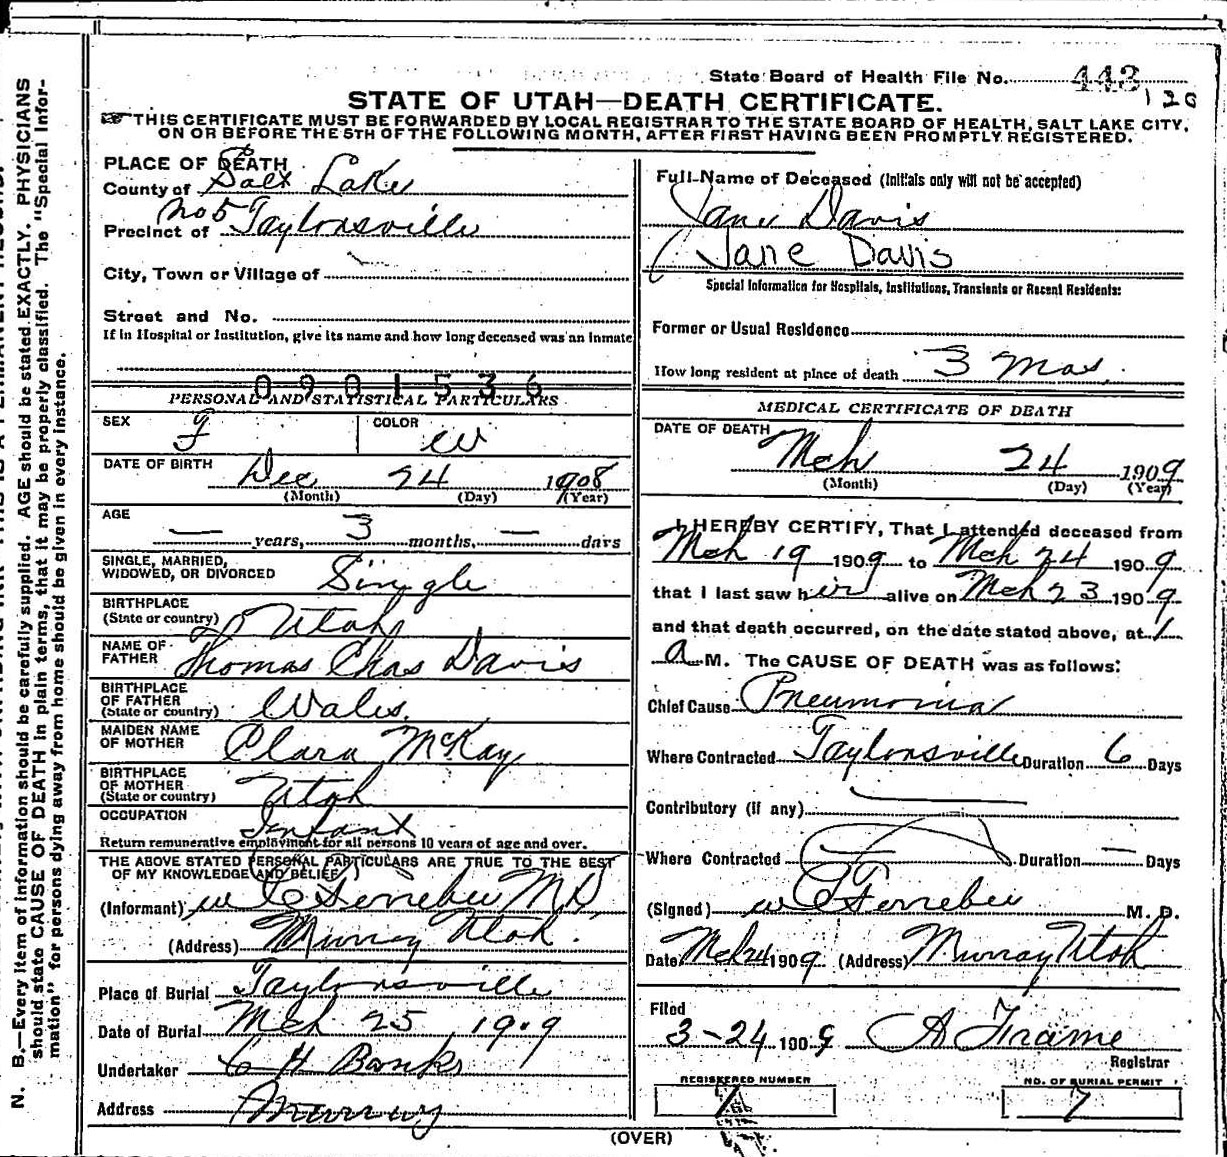 State Board of Health File No. 443
120
STATE OF UTAH—DEATH CERTIFICATE.
THIS CERTIFICATE MUST BE FORWARDED BY LOCAL REGISTRAR TO THE STATE BOARD OF HEALTH, SALT LAKE CITY,
ON OR BEFORE THE 5TH OF THE FOLLOWING MONTH, AFTER FIRST HAVING BEEN PROMPTLY REGISTERED.
PLACE OF DEATH
County of Salt Lake
Precinct of No 5 Taylorsville
City, Town or Village of
Street and No.
If in Hospital or Institution, give its name and how long deceased was an inmate
0901536
PERSONAL AND STATISTICAL PARTICULARS
SEX F COLOR W
DATE OF BIRTH Dec 24 1908
(Month) (Day) (Year)
AGE
— years, 3 months, — days
SINGLE, MARRIED,
WIDOWED, OR DIVORCED Single
BIRTHPLACE
(State or country) Utah
NAME OF
FATHER Thomas Chas Davis
BIRTHPLACE
OF FATHER
(State or country) Wales
MAIDEN NAME
OF MOTHER Clara McKay
BIRTHPLACE
OF MOTHER
(State or country) Utah
OCCUPATION Infant
Return remunerative employment for all persons 10 years of age and over.
THE ABOVE STATED PERSONAL PARTICULARS ARE TRUE TO THE BEST
OF MY KNOWLEDGE AND BELIEF
(Informant) W C Ferrebee M.D.
(Address) Murray Utah.
Place of Burial Taylorsville
Date of Burial Mch 25, 1909
Undertaker
Address Murray
Full Name of Deceased (Initials only will not be accepted)
Jane Davis
(Jane Davis
Special Information for Hospitals, Institutions, Transients or Recent Residents:
Former or Usual Residence
How long resident at place of death 3 Mos.
MEDICAL CERTIFICATE OF DEATH
DATE OF DEATH
Mch 24 1909
(Month) (Day) (Year)
I HEREBY CERTIFY, That I attended deceased from
Mch 19 1909 to Mch 24 1909
that I last saw her alive on Mch 23 1909
and that death occurred, on the date stated above, at 1
A M. The CAUSE OF DEATH was as follows:
Chief Cause Pneumonia
Where Contracted Taylorsville Duration 6 Days
Contributory (if any)
Where Contracted — Duration — Days
(Signed) W C Ferrebee M. D.
Date Mch 24 1909 (Address) Murray Utah
Filed
3-24 1909 A Frame
Registrar
REGISTERED NUMBER NO. OF BURIAL PERMIT
7 7
(OVER)
N. B.—Every item of information should be carefully supplied. AGE should be stated EXACTLY. PHYSICIANS
should state CAUSE OF DEATH in plain terms, that it may be properly classified. The "Special Infor-
mation" for persons dying away from home should be given in every instance.